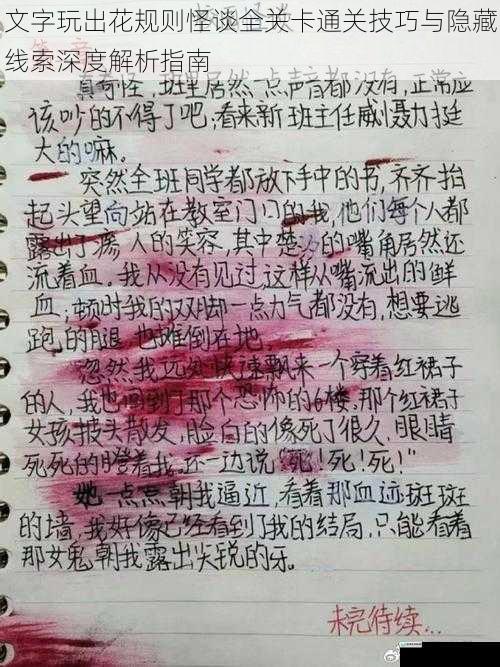 文字玩出花规则怪谈全关卡通关技巧与隐藏
线索深度解析指南
真奇怪，班里居然一点声音都没有，正常应
该吵的不得了吧，看来新班主任威慑力挺
大的嘛。
突然全班同学都放下手中的书，齐齐抬
起头望向站在教室门口的我，他们每个人都
露出了瘆人的笑容，其中楚的嘴角居然还
流着血。我从没有见过这样从嘴流出的鲜
血，顿时我的双脚一点力气都没有，想要逃
跑，的腿也摊倒在地
忽然我远处快速飘来一个穿着红裙子
的人，我也回到了那个恐怖的6楼，那个红裙子
女孩披头散发，脸白的像死了很久，眼睛
死死的瞪着我，还一边说“死！死！死！”
她一点点朝我逼近，看着那血迹斑斑
的墙，我好像已经看到了我的结局，只能看着
那女鬼朝我露出尖锐的牙。
未完待续...